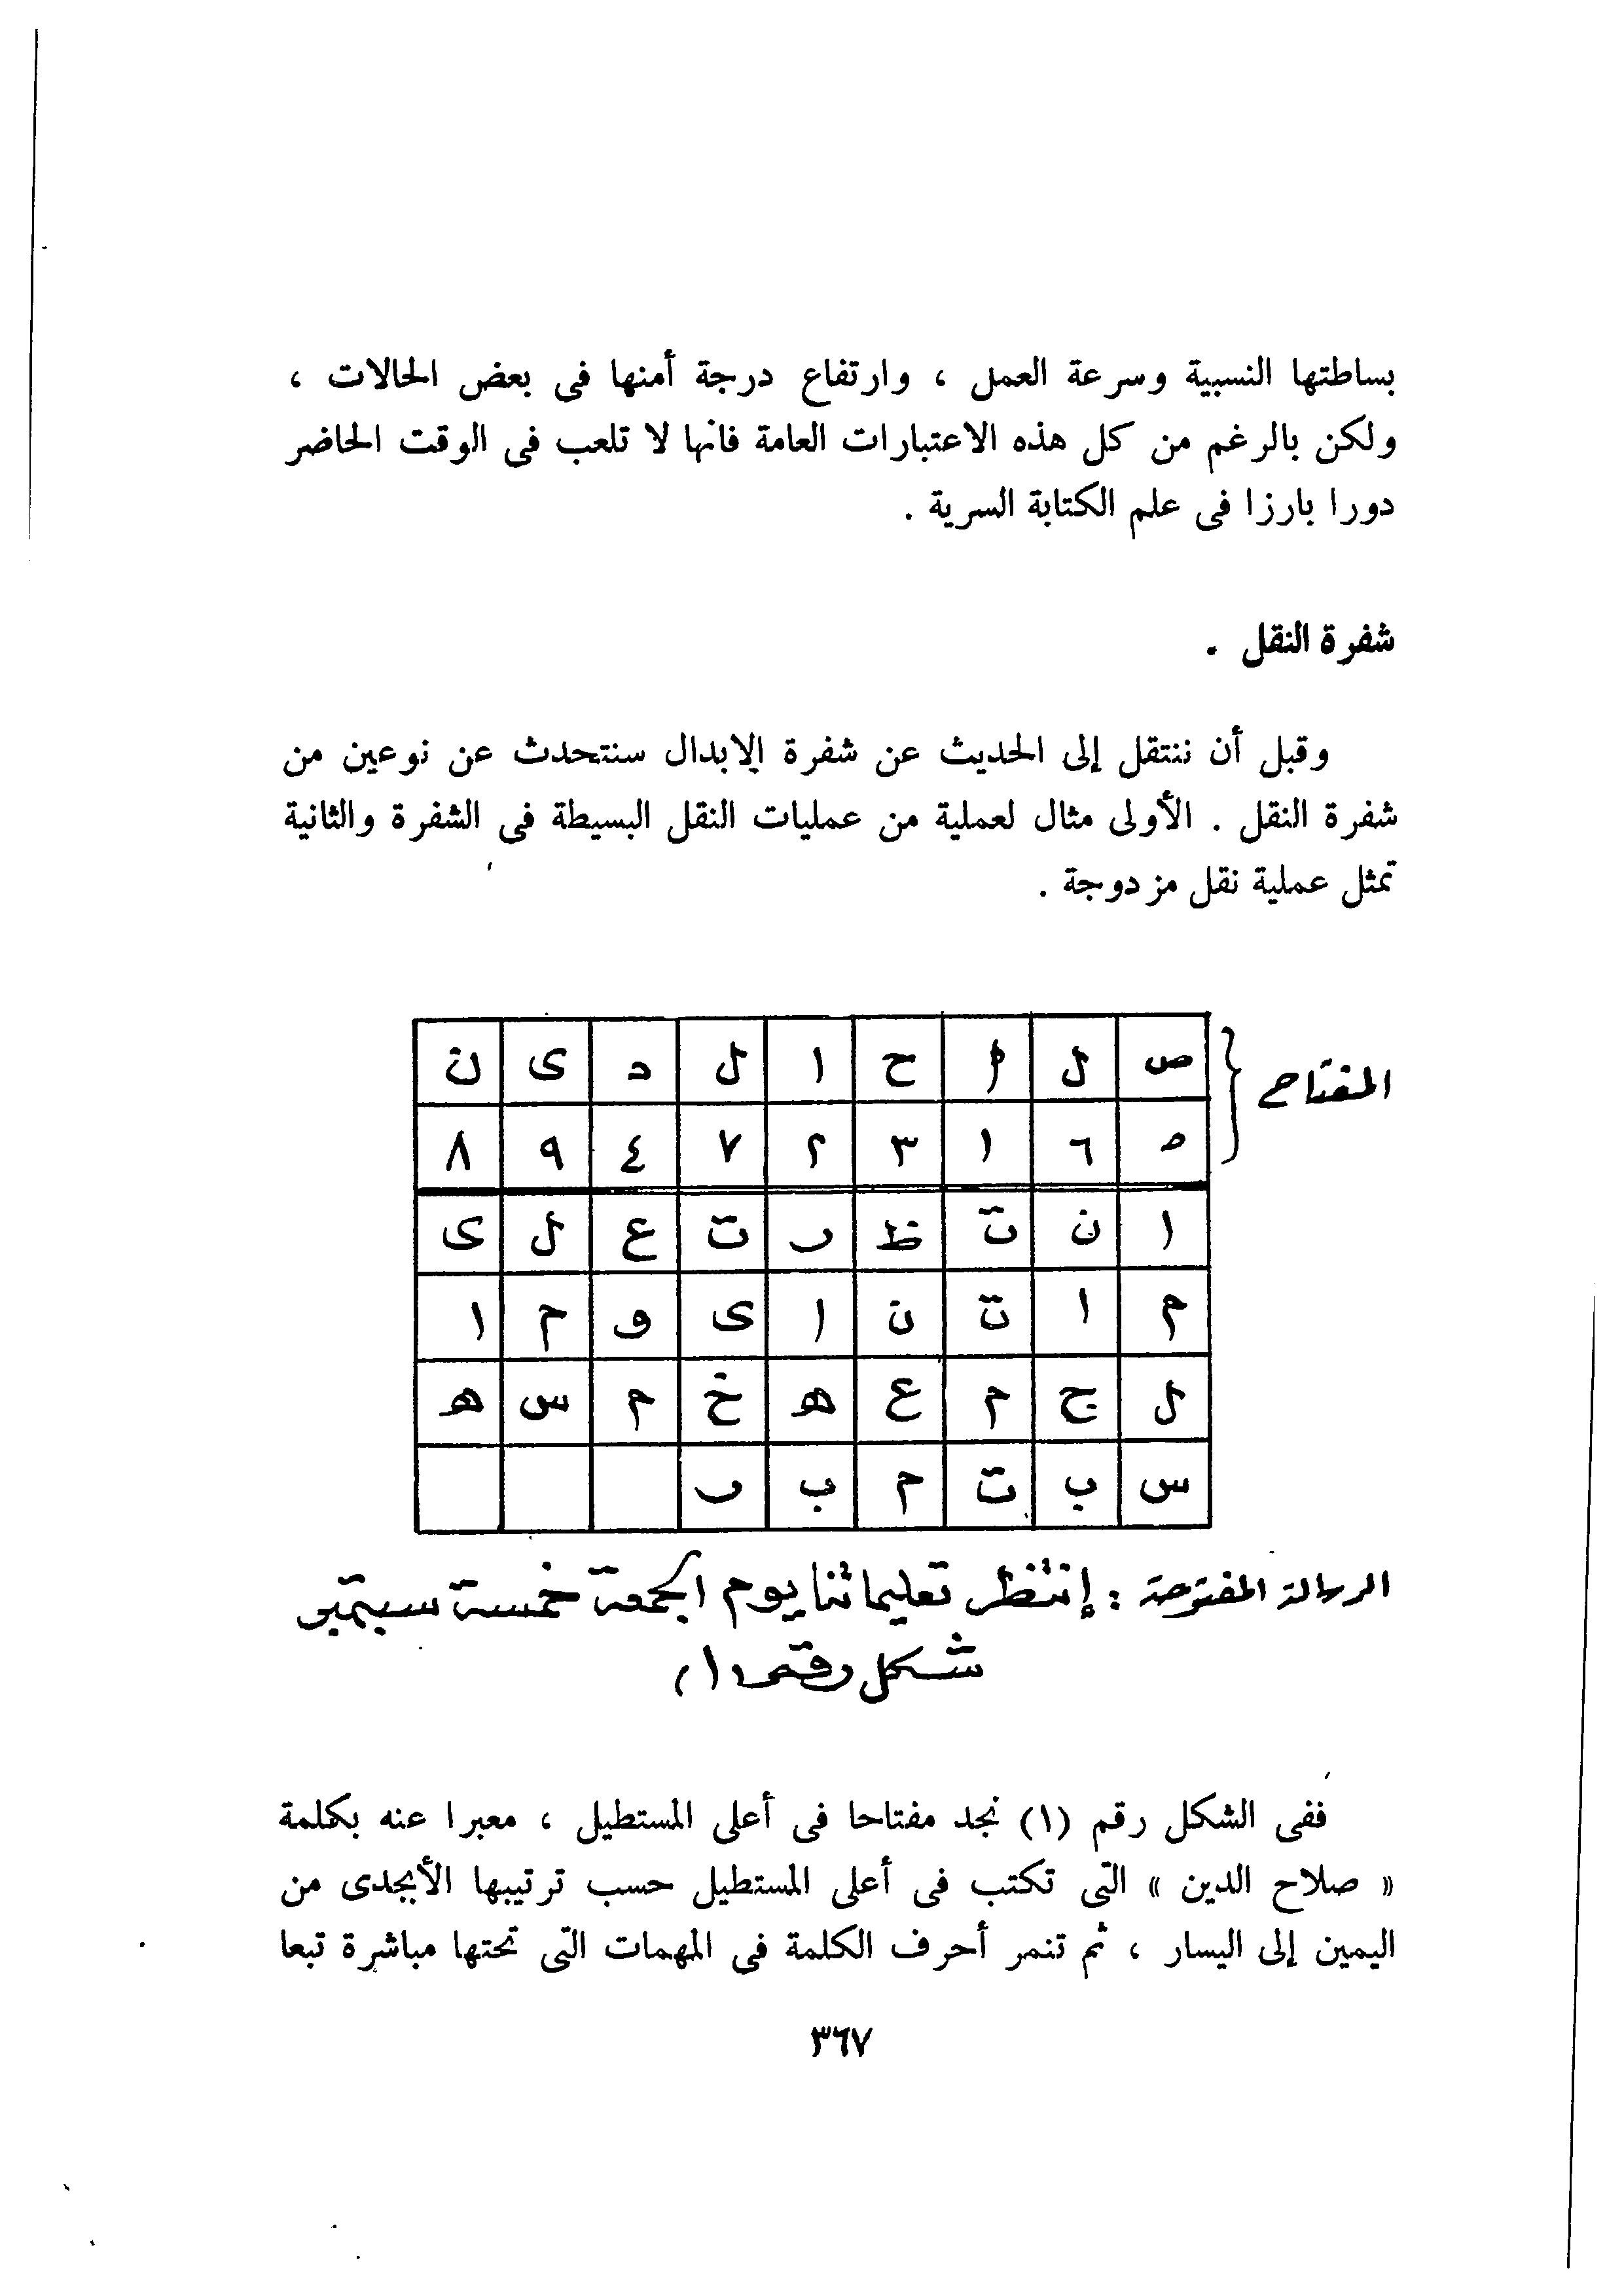 بساطتها النسبية وسرعة العمل ، وارتفاع درجة أمنها فى بعض الحالات ،
ولكن بالرغم من كل هذه الاعتبارات العامة فانها لا تلعب فى الوقت الحاضر
دورا بارزا فى علم الكتابة السرية .
شفرة النقل .
وقبل أن ننتقل إلى الحديث عن شفرة الإبدال سنتحدث عن نوعين من
شفرة النقل . الأولى مثال لعملية من عمليات النقل البسيطة فى الشفرة والثانية
تمثل عملية نقل مزدوجة .
المفتاح
ص ل ا ح ا ل د ى ن
٥ ٦ ١ ٣ ٢ ٧ ٤ ٩ ٨
ا ن ت ظ ر ت ع ل ى
م ا ت ن ا ى و م ا
ل ج م ع ه خ م س ه
س ب ت م ب ر
الرسالة المفتوحة : إنتظر تعليماتنا يوم الجمعة خمسة سبتمبر
شكل رقم (١)
ففى الشكل رقم (١) نجد مفتاحا فى أعلى المستطيل ، معبرا عنه بكلمة
« صلاح الدين » التى تكتب فى أعلى المستطيل حسب ترتيبها الأبجدى من
اليمين إلى اليسار ، ثم تنمر أحرف الكلمة فى المهمات التى تحتها مباشرة تبعا
٣٦٧